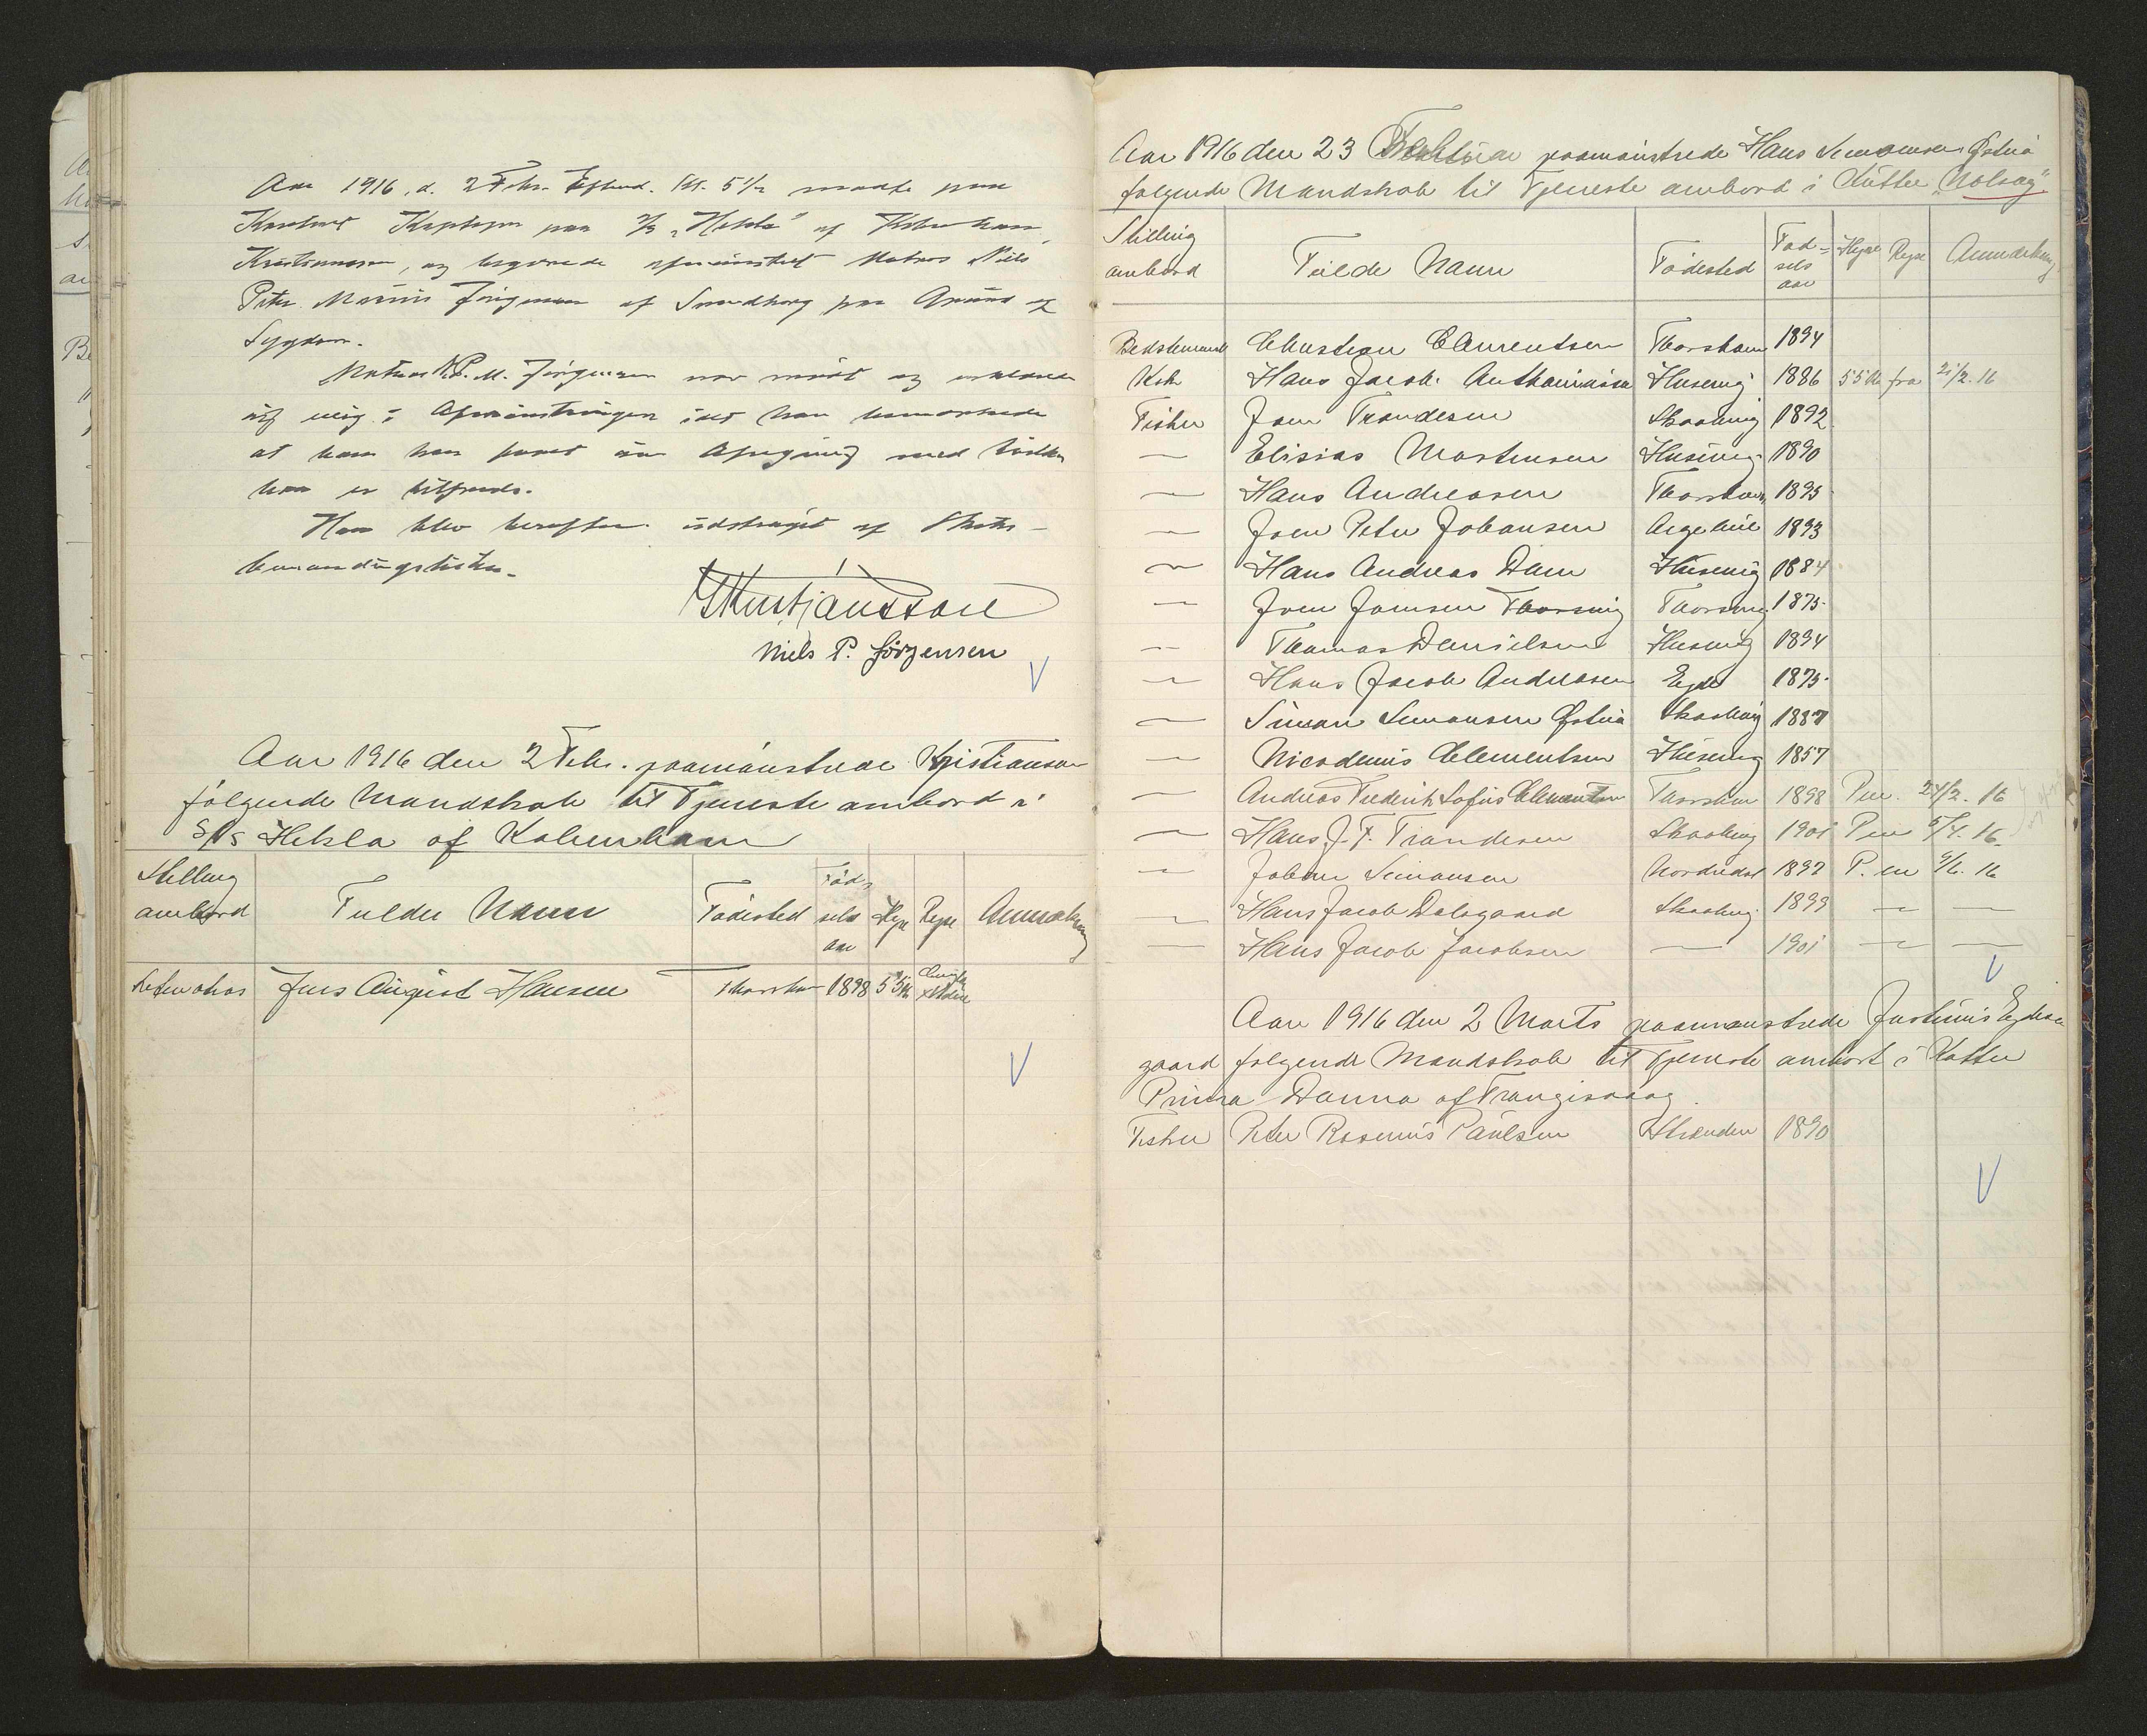 Aar 1916, d. 2 Febr. Efterm. Kl. 5½ mødte paa
Kontoret Kaptajn paa S/S "Hekla" af Kbhavn
Kristiansson, og begærede afmønstret Matros Niels
Peter Marius Jörgensen af Svendborg paa Grund af
Sygdom.
Matros N. P. M. Jörgensen var mødt og erklærede
sig enig i Afmønstringen idet han bemærkede
at han har faaet sin Afregning med hvilken
han er tilfreds.
Han blev herefter udstrøget af Skibs-
bemandingslisten.
Kristjánsson
Niels P. Jörgensen
Aar 1916 den 2 Febr. paamønstrede Kristianson
følgende Mandskab til Tjeneste ombord i
S/S Hekla af Kobenhavn
Stilling ombord Fulde Navn Fødested Fødselsaar Hyre Rejse Anmærkning
Letmatros Jens August Hansen Thorshavn 1898 55 Kr
Aar 1916 den 23 Februar paamønstrede Hans Simonsen Østrið
følgende Mandskab til Tjeneste ombord i Kutter "Nolsøy"
Stilling ombord Fulde Navn Fødested Fødselsaar Hyre Rejse Anmærkning
Bedstemand Christian Clementsen Thorshavn 1894
Kok Hans Jacob Husevig 1886 55 Kr fra 21/2.16
Fisker Joen Trondesen Skaalevig 1892
— Elisias Mortensen Husevig 1890
— Hans Andreasen Thorshavn 1895
— Joen Peter Johansen 1893
— Hans Andreas Dam Husevig 1884
— Joen Joensen Thorsvig Thorsvig 1875
— Thomas Danielsen Husevig 1894
— Hans Jacob Andreasen Eyde 1875
— Simon Simonsen Østrið Skaalevig 1887
— Nicodemus Clementsen Husevig 1857
— Andreas Frederik Sofus Clementsen Thorshavn 1898 Pen. 24/2.16
— Hans J. F. Trondesen Skaalevig 1901 Pen 5/4.16
— Johan Simonsen Nordredal 1892 P. en 9/6.16
— Hans Jacob Dalsgaard Skaalevig 1899 — —
— Hans Jacob Jacobsen — 1901 — —
Aar 1916 den 2 Marts paamønstrede Justinus Eydes-
gaard følgende Mandskab til Tjeneste ombord i Kutter
Prima Danna af Trangisvaag.
Fisker Peter Rasmus Paulsen Strænder 1890